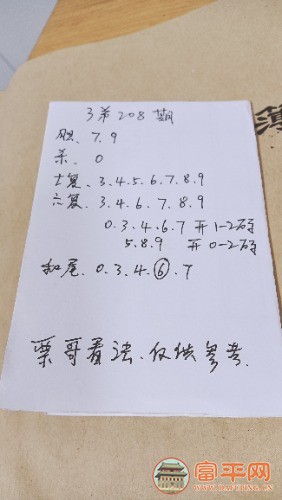 3弟208期
胆. 7.9
杀. 0
七复. 3.4.5.6.7.8.9
六复. 3.4.6.7.8.9
0.3.4.6.7 开 1-2码
5.8.9 开 0-2码
和尾. 0.3.4.⑥.7
栗哥看法.仅供参考.
富平网